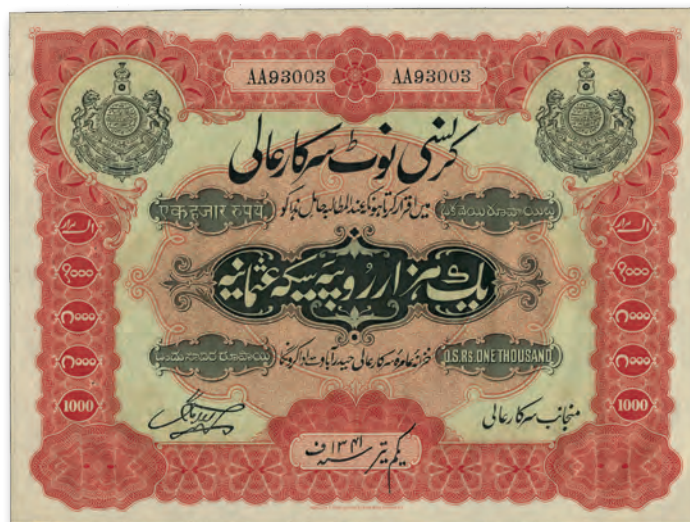 AA93003 AA93003
کرنسی نوٹ سرکار عالی
एक हजार रुपये
میں اقرار کرتا ہوں کہ عند المطالبہ حامل ہذا کو
یک ہزار روپیہ سکہ عثمانیہ
خزانہ عامرہ سرکار عالی حیدرآباد سے ادا کرونگا
O.S.Rs. ONE THOUSAND
१०००
1000 1000
منجانب سرکار عالی
یکم تیر سنہ ۱۳۴۱ ف